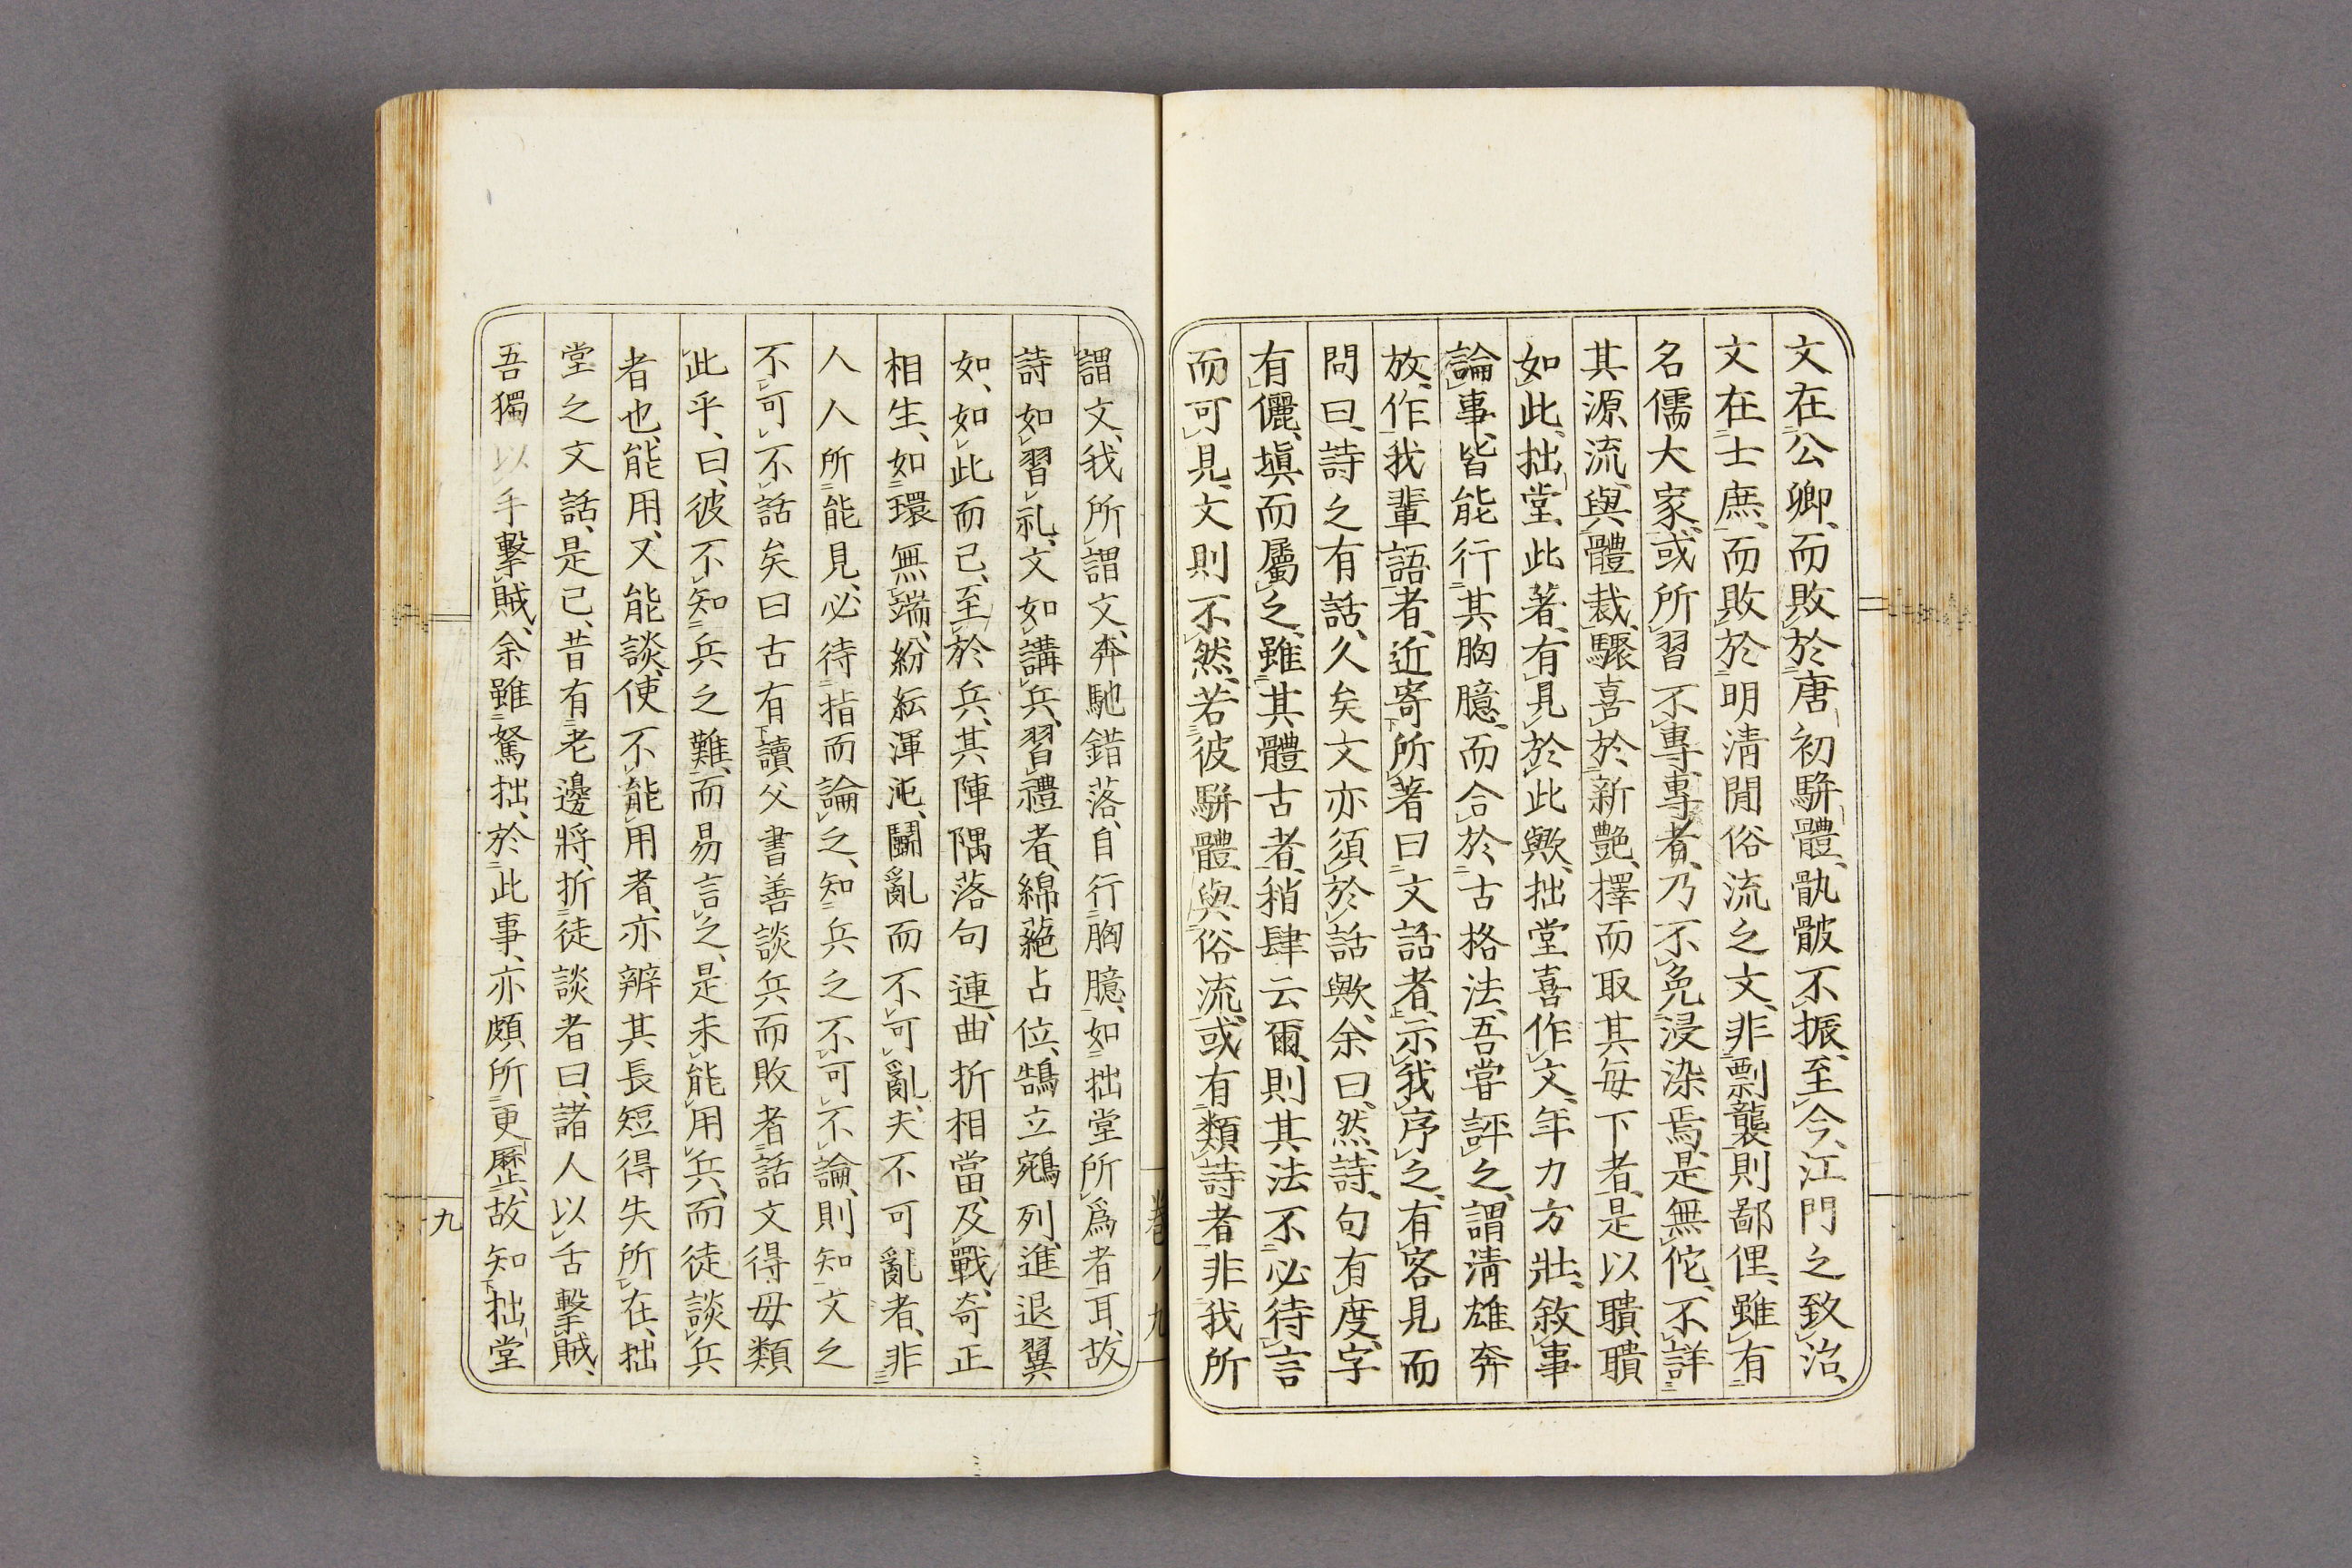 文在公卿、而敗於唐初駢體、骩骳不振、至今、江門之致治、
文在士庶、而敗於明清間俗流之文、非剽襲則鄙俚、雖有
名儒大家、或所習不專、專者、乃不免浸染焉、是無佗、不詳
其源流、與體裁、驟喜於新艷、擇而取其每下者、是以聵聵
如此、拙堂此著、有見於此歟、拙堂喜作文、年力方壯、敘事
論事、皆能行其胸臆、而合於古格法、吾嘗評之、謂清雄奔
放、作我輩語者、近寄所著曰文話者、示我序之、有客見而
問曰、詩之有話、久矣文亦須於話歟、余曰、然、詩、句有度、字
有儷、塡而屬之、雖其體古者、稍肆云爾、則其法不必待言
而可見、文則不然、若彼駢體與俗流、或有類詩者、非我所
謂文、我所謂文、奔馳錯落、自行胸臆、如拙堂所爲者耳、故
詩如習礼、文如講兵、習禮者、綿蕝占位、鵠立鵷列、進退翼
如、如此而已、至於兵、其陣隅落句連、曲折相當、及戰、奇正
相生、如環無端、紛紜渾沌、鬬亂而不可亂、夫不可亂者、非
人人所能見、必待指而論之、知兵之不可不論、則知文之
不可不話矣曰古有讀父書善談兵而敗者話文得毋類
此乎、曰、彼不知兵之難、而易言之、是未能用兵、而徒談兵
者也、能用、又能談、使不能用者、亦辨其長短得失所在、拙
堂之文話、是已、昔有老邊將、折徒談者曰、諸人以舌擊賊、
吾獨以手擊賊、余雖駑拙、於此事、亦頗所更歷、故知拙堂
九
九